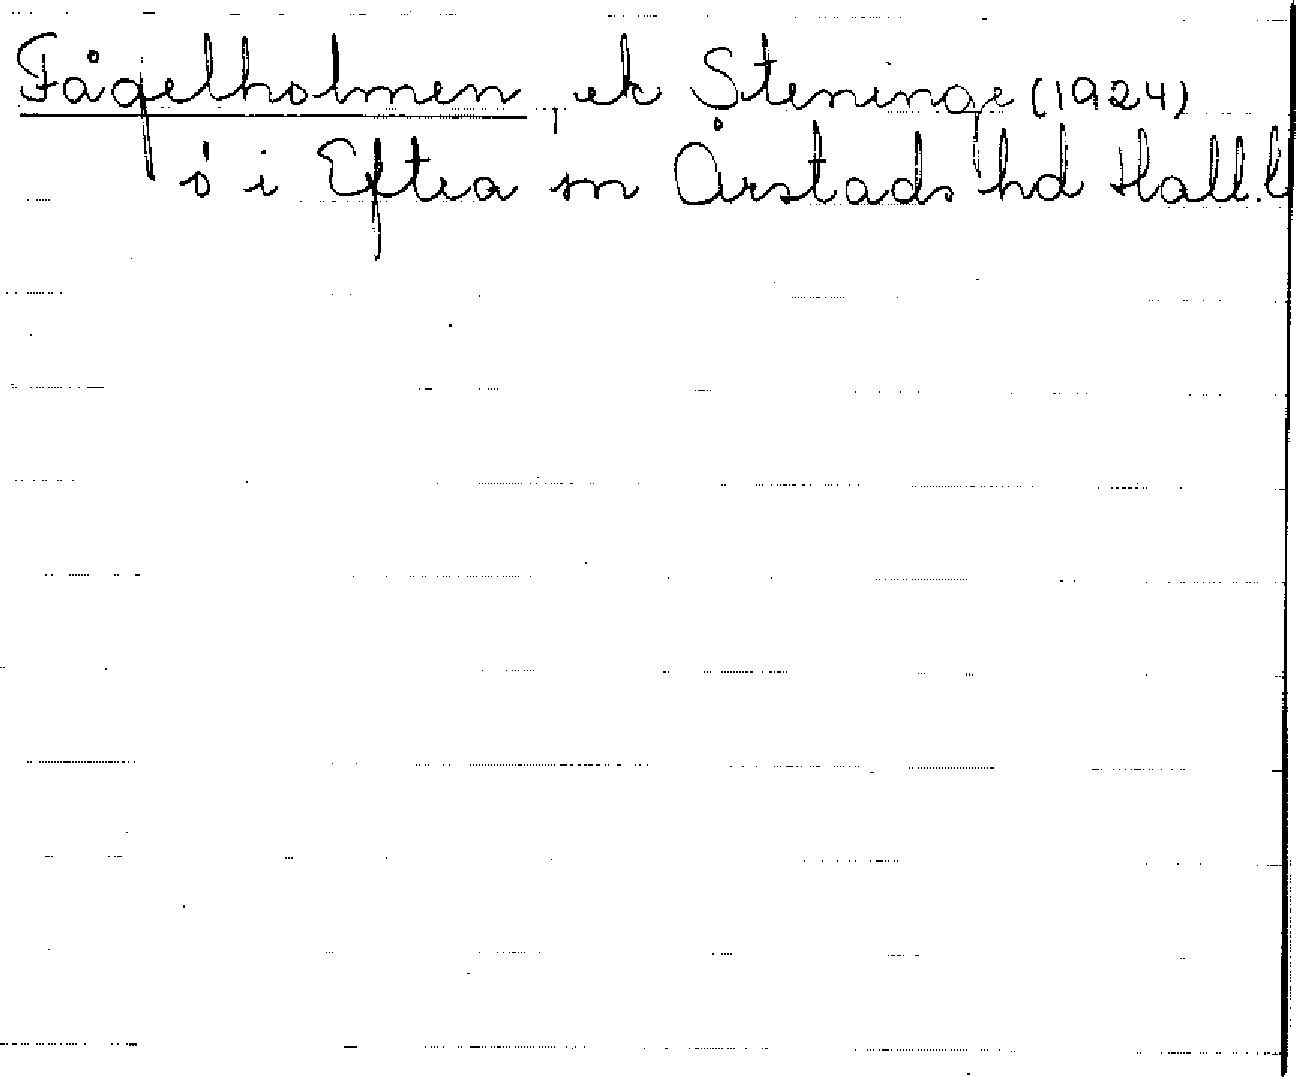 Fågelholmen, ek Steninge (1924)
ö i Eftra sn Årstads hd Hall.l